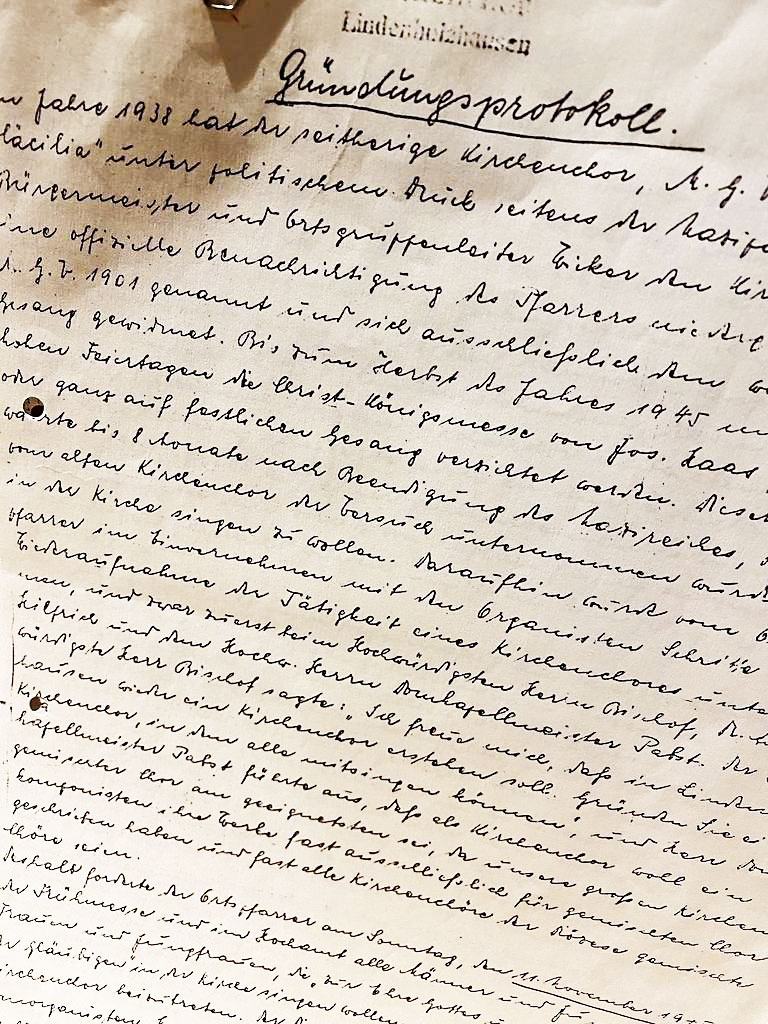 Lindenholzhausen
Gründungsprotokoll.
Jahre 1938 hat der seitherige Kirchenchor, M. G. V.
Cäcilia" unter politischem Druck seitens der Nazipa
Bürgermeister und Ortsgruppenleiter den Kir
ine offizielle Benachrichtigung des Pfarrers niederge
M. G. V. 1901 genannt und sich ausschließlich dem we
Gesang gewidmet. Bis zum Herbst des Jahres 1945 mu
hohen Feiertagen die Christ-Königsmesse von Jos. Haas
oder ganz auf festlichen Gesang verzichtet werden. Dieser
wartete bis 8 Monate nach Beendigung des Nazireiches,
vom alten Kirchenchor der Versuch unternommen wurde
in der Kirche singen zu wollen. Daraufhin wurde vom O
pfarrer im Einvernehmen mit den Organisten Schritte
Wiederaufnahme der Tätigkeit eines Kirchenchores unter
men, und zwar zuerst beim Hochwürdigsten Herrn Bischof, Dr.
und dem Hochw. Herrn Domkapellmeister Pabst. Der
würdigste Herr Bischof sagte: „Ich freue mich, daß in Linden
hausen wieder ein Kirchenchor erstehen soll. Gründen Sie ei
Kirchenchor, in dem alle mitsingen können", und Herr Dom
kapellmeister Pabst führte aus, daß als Kirchenchor wohl ein
gemischter Chor am geeignetsten sei, da unsere großen Kirchen
komponisten ihre Werke fast ausschließlich für gemischten Chor
geschrieben haben und fast alle Kirchenchöre der Diözese gemischte
Chöre seien.
Deshalb forderte der Ortspfarrer am Sonntag, den 11. November 19
der Frühmesse und im Hochamt alle Männer und
Frauen und Jungfrauen, die „zur Ehre Gottes u
der Gläubigen" in der Kirche singen wollen
irchenchor beizutreten. Der